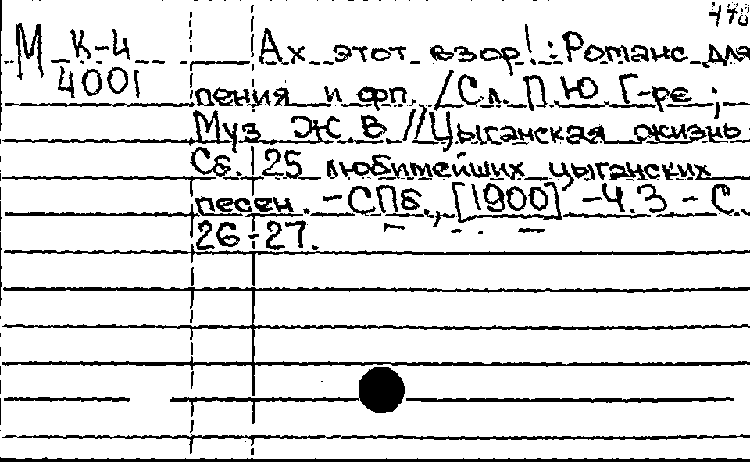 М К-4
4001
Ах этот взор! : Романс для
пения и фп. / Сл. П.Ю. Г-ре ;
Муз Ж.В. // Цыганская жизнь
Сб. 25 любимейших цыганских
песен. - СПб., [1900] - Ч.3 - С.
26-27.